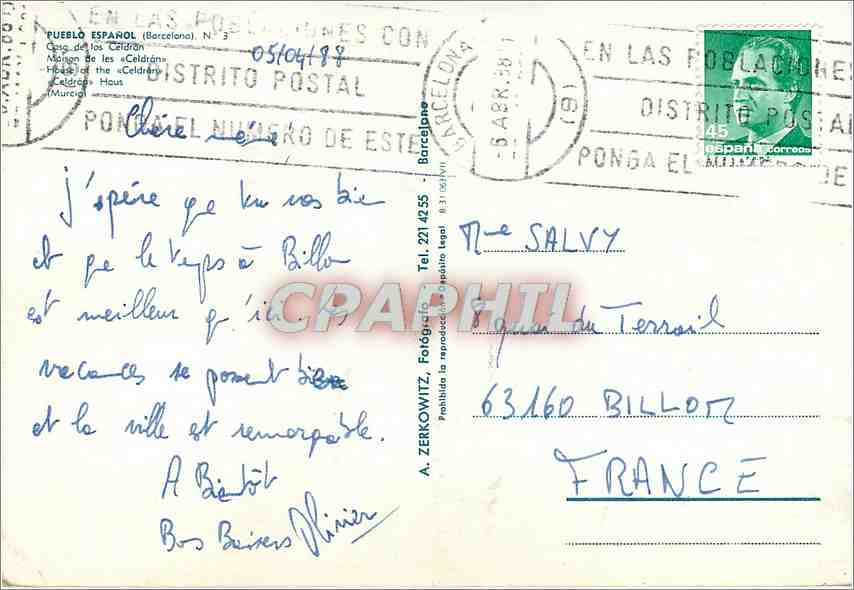 PUEBLO ESPAÑOL (Barcelona). N. 3
Casa de los Celdrán
Maison de les «Celdrán»
House of the «Celdrán»
«Celdrán» Haus
(Murcia)
05/04/88
EN LAS POBLACIONES CON
DISTRITO POSTAL
PONGA EL NUMERO DE ESTE
Chère mémé
j'espère que tu vas bien
et que le temps à Billom
est meilleur qu'ici. les
vacances se passent bien
et la ville est remarquable.
A Bientôt
Bos Baisers Olivier
A. ZERKOWITZ, Fotógrafo - Tel. 221 42 55 - Barcelona
Prohibida la reproducción - Depósito Legal B 31.063-VII
BARCELONA
-5.ABR.88
(9)
EN LAS POBLACIONES
DISTRITO POSTAL
PONGA EL NUMERO DE
45
españa correos
CPAPHIL
Mme SALVY
8 quai du Terrail
63160 BILLOM
FRANCE